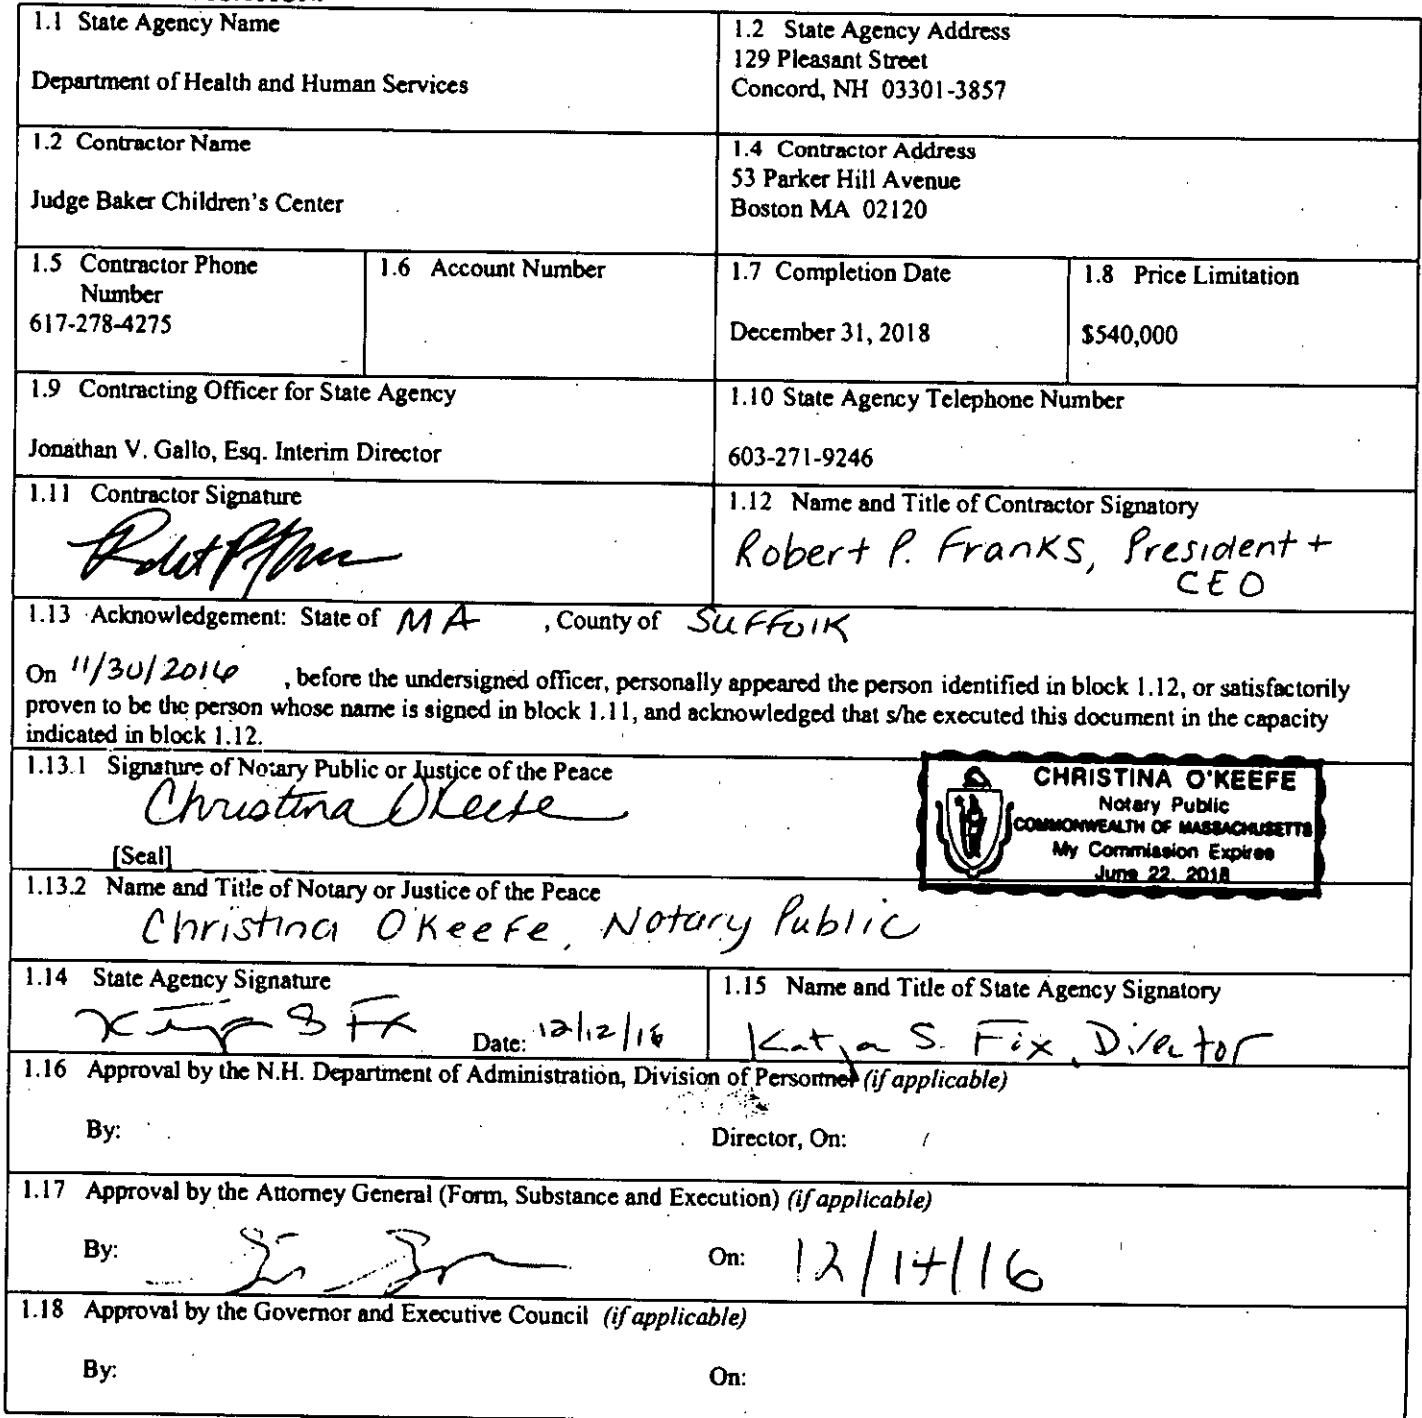 1.1 State Agency Name
Department of Health and Human Services
1.2 State Agency Address
129 Pleasant Street
Concord, NH 03301-3857
1.2 Contractor Name
Judge Baker Children's Center
1.4 Contractor Address
53 Parker Hill Avenue
Boston MA 02120
1.5 Contractor Phone
Number
617-278-4275
1.6 Account Number
1.7 Completion Date
December 31, 2018
1.8 Price Limitation
$540,000
1.9 Contracting Officer for State Agency
Jonathan V. Gallo, Esq. Interim Director
1.10 State Agency Telephone Number
603-271-9246
1.11 Contractor Signature
1.12 Name and Title of Contractor Signatory
Robert P. Franks, President +
CEO
1.13 Acknowledgement: State of MA , County of Suffolk
On 11/30/2016 , before the undersigned officer, personally appeared the person identified in block 1.12, or satisfactorily
proven to be the person whose name is signed in block 1.11, and acknowledged that s/he executed this document in the capacity
indicated in block 1.12.
1.13.1 Signature of Notary Public or Justice of the Peace
Christina O'Keefe
[Seal]
CHRISTINA O'KEEFE
Notary Public
COMMONWEALTH OF MASSACHUSETTS
My Commission Expires
June 22, 2018
1.13.2 Name and Title of Notary or Justice of the Peace
Christina O'Keefe, Notary Public
1.14 State Agency Signature
Date: 12/12/16
1.15 Name and Title of State Agency Signatory
Katja S. Fix, Director
1.16 Approval by the N.H. Department of Administration, Division of Personnel (if applicable)
By: Director, On:
1.17 Approval by the Attorney General (Form, Substance and Execution) (if applicable)
By: On: 12/14/16
1.18 Approval by the Governor and Executive Council (if applicable)
By: On: